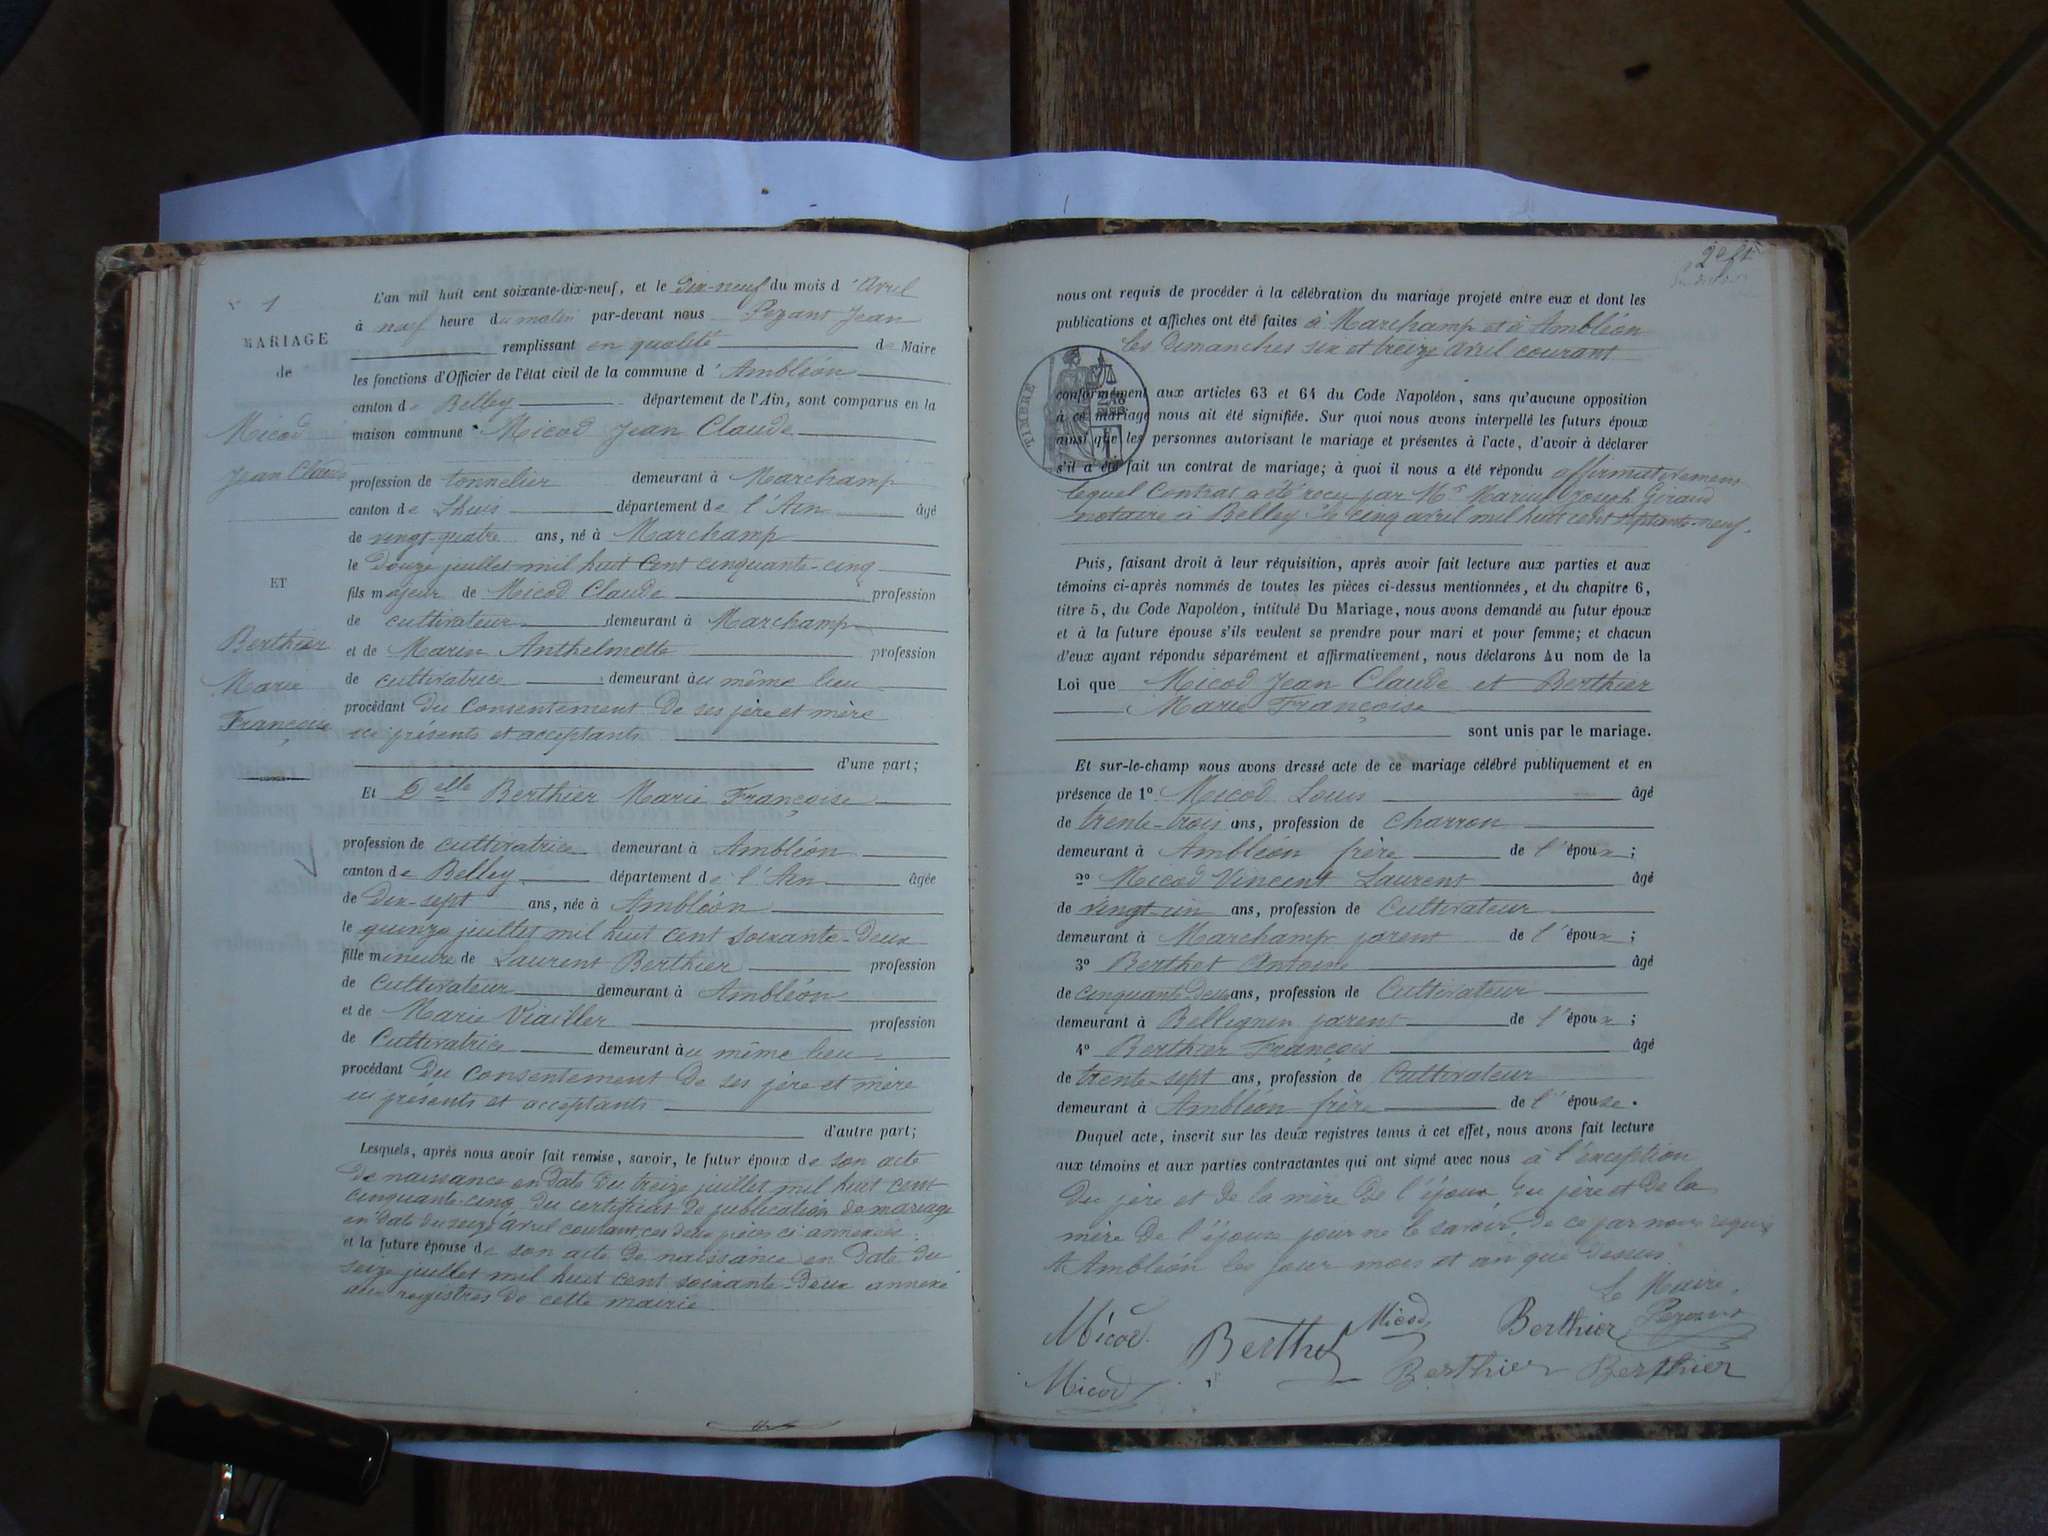 1
MARIAGE
de
Micod
Jean Claude
ET
Berthier
Marie
Françoise
L'an mil huit cent soixante-dix-neuf, et le dix-neuf du mois d'avril
à neuf heure du matin par-devant nous Pezant Jean
remplissant en qualité de Maire
les fonctions d'Officier de l'état civil de la commune d'Ambléon
canton de Belley département de l'Ain, sont comparus en la
maison commune Micod Jean Claude
profession de tonnelier demeurant à Marchamp
canton de Lhuis département de l'Ain âgé
de vingt-quatre ans, né à Marchamp
le douze juillet mil huit cent cinquante-cinq
fils majeur de Micod Claude profession
de cultivateur demeurant à Marchamp
et de Anthelmette profession
de cultivatrice demeurant au même lieu
procédant du consentement de ses père et mère
ici présents et acceptants
d'une part;
Et Delle Berthier Marie Françoise
profession de cultivatrice demeurant à Ambléon
canton de Belley département de l'Ain âgée
de dix-sept ans, née à Ambléon
le quinze juillet mil huit cent soixante-deux
fille mineure de Laurent Berthier profession
de cultivateur demeurant à Ambléon
et de Marie Viailler profession
de cultivatrice demeurant au même lieu
procédant du consentement de ses père et mère
ici présents et acceptants
d'autre part;
Lesquels, après nous avoir fait remise, savoir, le futur époux de son acte
de naissance en date du treize juillet mil huit cent
cinquante-cinq, du certificat de publication de mariage
en date du seize avril courant, ces deux pièces ci annexées.
et la future épouse de son acte de naissance en date du
seize juillet mil huit cent soixante-deux annexé
aux registres de cette mairie.
nous ont requis de procéder à la célébration du mariage projeté entre eux et dont les
publications et affiches ont été faites à Marchamp et à Ambléon
les dimanches six et treize avril courant
TIMBRE
conformément aux articles 63 et 64 du Code Napoléon, sans qu'aucune opposition
à ce mariage nous ait été signifiée. Sur quoi nous avons interpellé les futurs époux
ainsi que les personnes autorisant le mariage et présentes à l'acte, d'avoir à déclarer
s'il a été fait un contrat de mariage; à quoi il nous a été répondu affirmativement
lequel contrat a été reçu par Me Marius Joseph Giraud
notaire à Belley le cinq avril mil huit cent septante-neuf.
Puis, faisant droit à leur réquisition, après avoir fait lecture aux parties et aux
témoins ci-après nommés de toutes les pièces ci-dessus mentionnées, et du chapitre 6,
titre 5, du Code Napoléon, intitulé Du Mariage, nous avons demandé au futur époux
et à la future épouse s'ils veulent se prendre pour mari et pour femme; et chacun
d'eux ayant répondu séparément et affirmativement, nous déclarons Au nom de la
Loi que Micod Jean Claude et Berthier
Marie Françoise
sont unis par le mariage.
Et sur-le-champ nous avons dressé acte de ce mariage célébré publiquement et en
présence de 1º Micod Louis âgé
de trente-trois ans, profession de charron
demeurant à Ambléon frère de l'époux;
2º Micod Vincent Laurent âgé
de vingt-un ans, profession de cultivateur
demeurant à Marchamp parent de l'époux;
3º Berthet Antoine âgé
de cinquante-deux ans, profession de cultivateur
demeurant à Bellignin parent de l'époux;
4º Berthier François âgé
de trente-sept ans, profession de cultivateur
demeurant à Ambléon frère de l'épouse.
Duquel acte, inscrit sur les deux registres tenus à cet effet, nous avons fait lecture
aux témoins et aux parties contractantes qui ont signé avec nous à l'exception
du père et de la mère de l'époux, du père et de la
mère de l'épouse pour ne le savoir, de ce par nous requis
A Ambléon les jour mois et an que dessus.
Le Maire,
Micod Berthet Micod Berthier Pezant
Micod Berthier Berthier